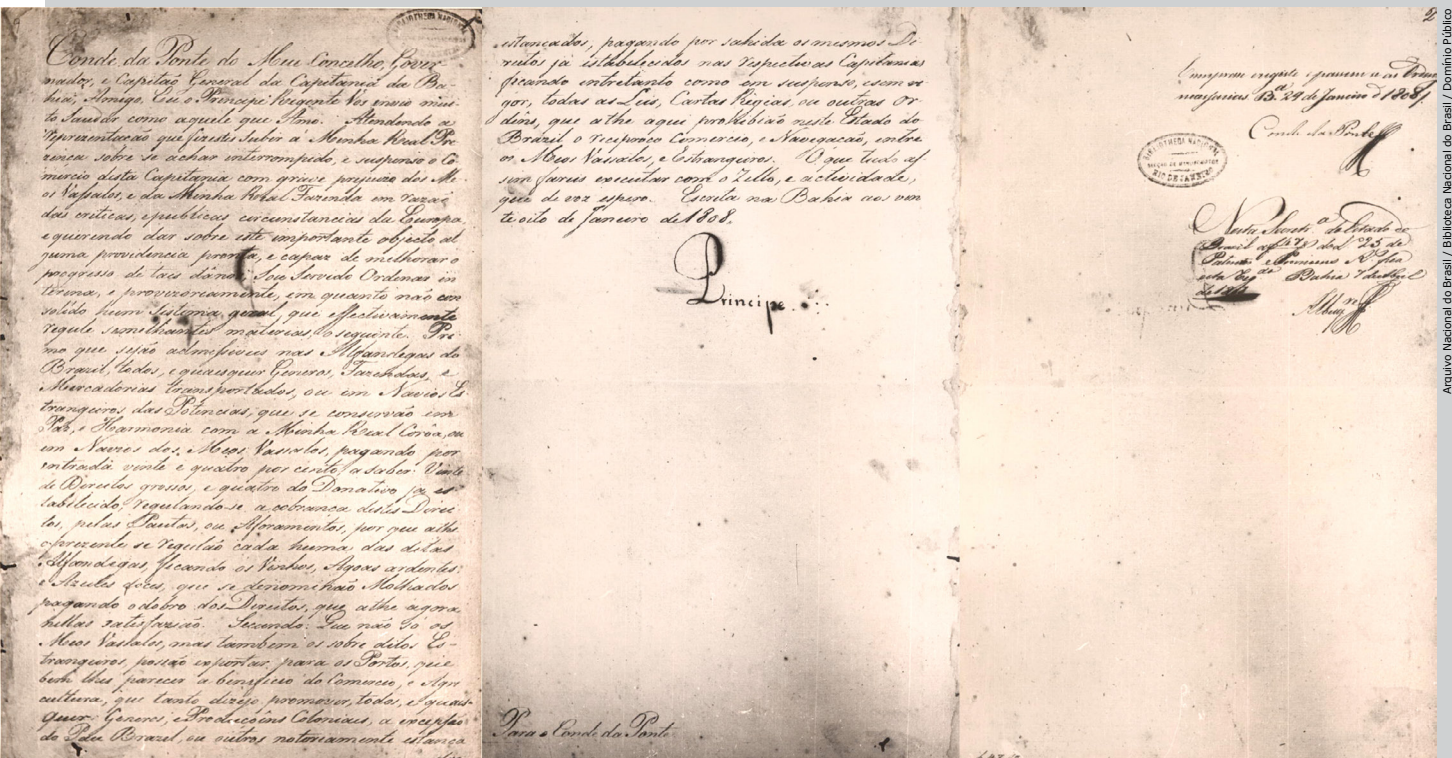 Conde da Ponte do Meu Concelho, Gover-
nador, e Capitaõ General da Capitania da Ba-
hia, Amigo, Eu o Principe Regente Vos envio mui-
to Saudar como aquele que Amo. Atendendo a
representaçaõ que fizestes subir á Minha Real Pre-
zença sobre se achar interrompido, e suspenso o Co-
mercio desta Capitania com grave prejuizo dos Me-
os Vassalos, e da Minha Real Fazenda em razaõ
das criticas, e publicas circunstancias da Europa,
e querendo dar sobre este importante objecto al-
guma providencia pronta, e capaz de melhorar o
progresso de taes danos: Sou Servido Ordenar in-
terina, e provizoriamente, em quanto naõ con-
solido hum Sistema geral, que effectivamente
regule semelhantes materias, o seguinte. Pri-
mo que sejaõ admissiveis nas Alfandegas do
Brazil, todos, e quaesquer Generos, Fazendas, e
Mercadorias transportados, ou em Navios Es-
trangeiros das Potencias, que se conservaõ em
Paz, e Harmonia com a Minha Real Corôa, ou
em Navios dos Meos Vassalos, pagando por
entrada vinte e quatro por cento; a saber: Vinte
de Direitos grossos, e quatro do Donativo ja es-
tabelecido, regulando-se a cobrança destes Direi-
tos, pelas Pautas, ou Aforamentos, por que athe
o prezente se regulaõ cada huma das ditas
Alfandegas, ficando os Vinhos, Agoas ardentes,
e Azeites doces, que se denominaõ Molhados
pagando o dobro dos Direitos, que athe agora
nellas satisfaziaõ. Secundo: Que naõ só os
Meos Vassalos, mas tambem os sobre ditos Es-
trangeiros, possaõ exportar para os Portos, que
bem lhes parecer a beneficio do Comercio, e Agri-
cultura, que tanto dezejo promover, todos, e quaes-
quer Generos, e Producçoens Coloniaes, a excepçaõ
do Páu Brazil, ou outros notoriamente estanca-
estancados, pagando por sahida os mesmos Di-
reitos já estabelecidos nas respectivas Capitanias
ficando entretanto como em suspenso, e sem vi-
gor, todas as Leis, Cartas Regias, ou outras Or-
dens, que athe aqui prohibiaõ neste Estado do
Brazil o reciproco Comercio, e Navegaçaõ, entre
os Meos Vassalos, e Estrangeiros. O que tudo as-
sim fareis executar com o Zello, e actividade,
que de vóz espero. Escrita na Bahia aos vin-
te oito de Janeiro de 1808.
Principe
Para o Conde da Ponte
2
Cumpra-se registe e passem-se as Ordens
necessarias. Ba. 29 de Janeiro de 1808
Conde da Ponte
BIBLIOTHECA NACIONAL
SECÇÃO DE MANUSCRIPTOS
RIO DE JANEIRO
Secret.a do Estado do
Brazil a f 178 do L.o 25 de
Bahia 7 de
Arquivo Nacional do Brasil / Biblioteca Nacional do Brasil / Domínio Público